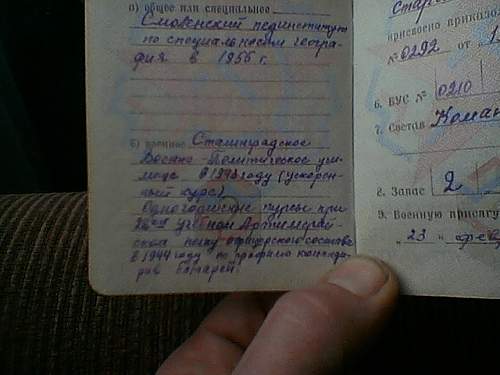 а) общее или специальное
Смоленский пединститут
по специальности геогра-
фия в 1955 г.
б) военное Сталинградское
Военно-Политическое учи-
лище в году (ускорен-
ный курс)
Одногодичные курсы при
учебном Артиллерий-
ском полку офицерского состава
в 1944 году по профилю команди-
ров батарей.
присвоено приказо
№ 0292 от
6. ВУС № 0210
7. Состав Коман
8. Запас 2
9. Военную присягу
" 23 " фев